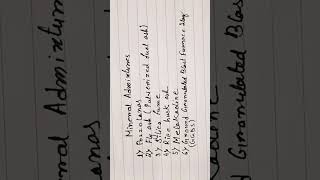 Mineral Admixtures
1) Pozzolanas
2) Fly ash (Pulverized fuel ash)
3) Silica fume
4) Rice husk ash
5) Metakaoline
6) Ground Granulated Blast Furnace Slag
(GGBS)